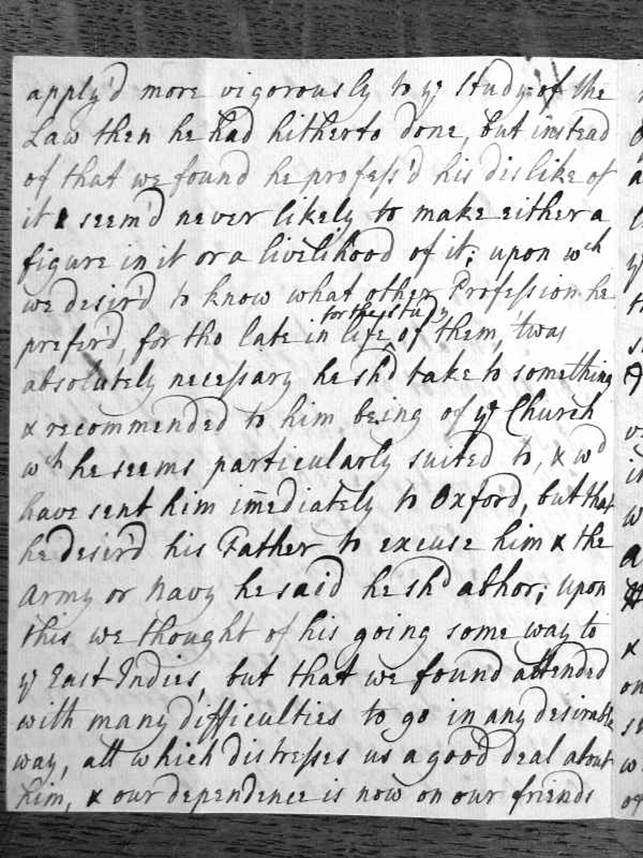 apply'd more vigorously to ye study of the
Law then he had hitherto done, but instead
of that we found he profess'd his dislike of
it & seem'd never likely to make either a
figure in it or a livelihood of it; upon wch
we desir'd to know what other Profession he
for the study
prefer'd, for tho late in life of them, 'twas
absolutely necessary he shd take to something
& recommended to him being of ye Church
wch he seems particularly suited to, & wd
have sent him im̄ediately to Oxford, but that
he desir'd his Father to excuse him & the
Army or Navy he said he shd abhor; upon
this we thought of his going some way to
ye East Indies, but that we found attended
with many difficulties to go in any desirable
way, all which distresses us a good deal about
him, & our dependence is now on our friends